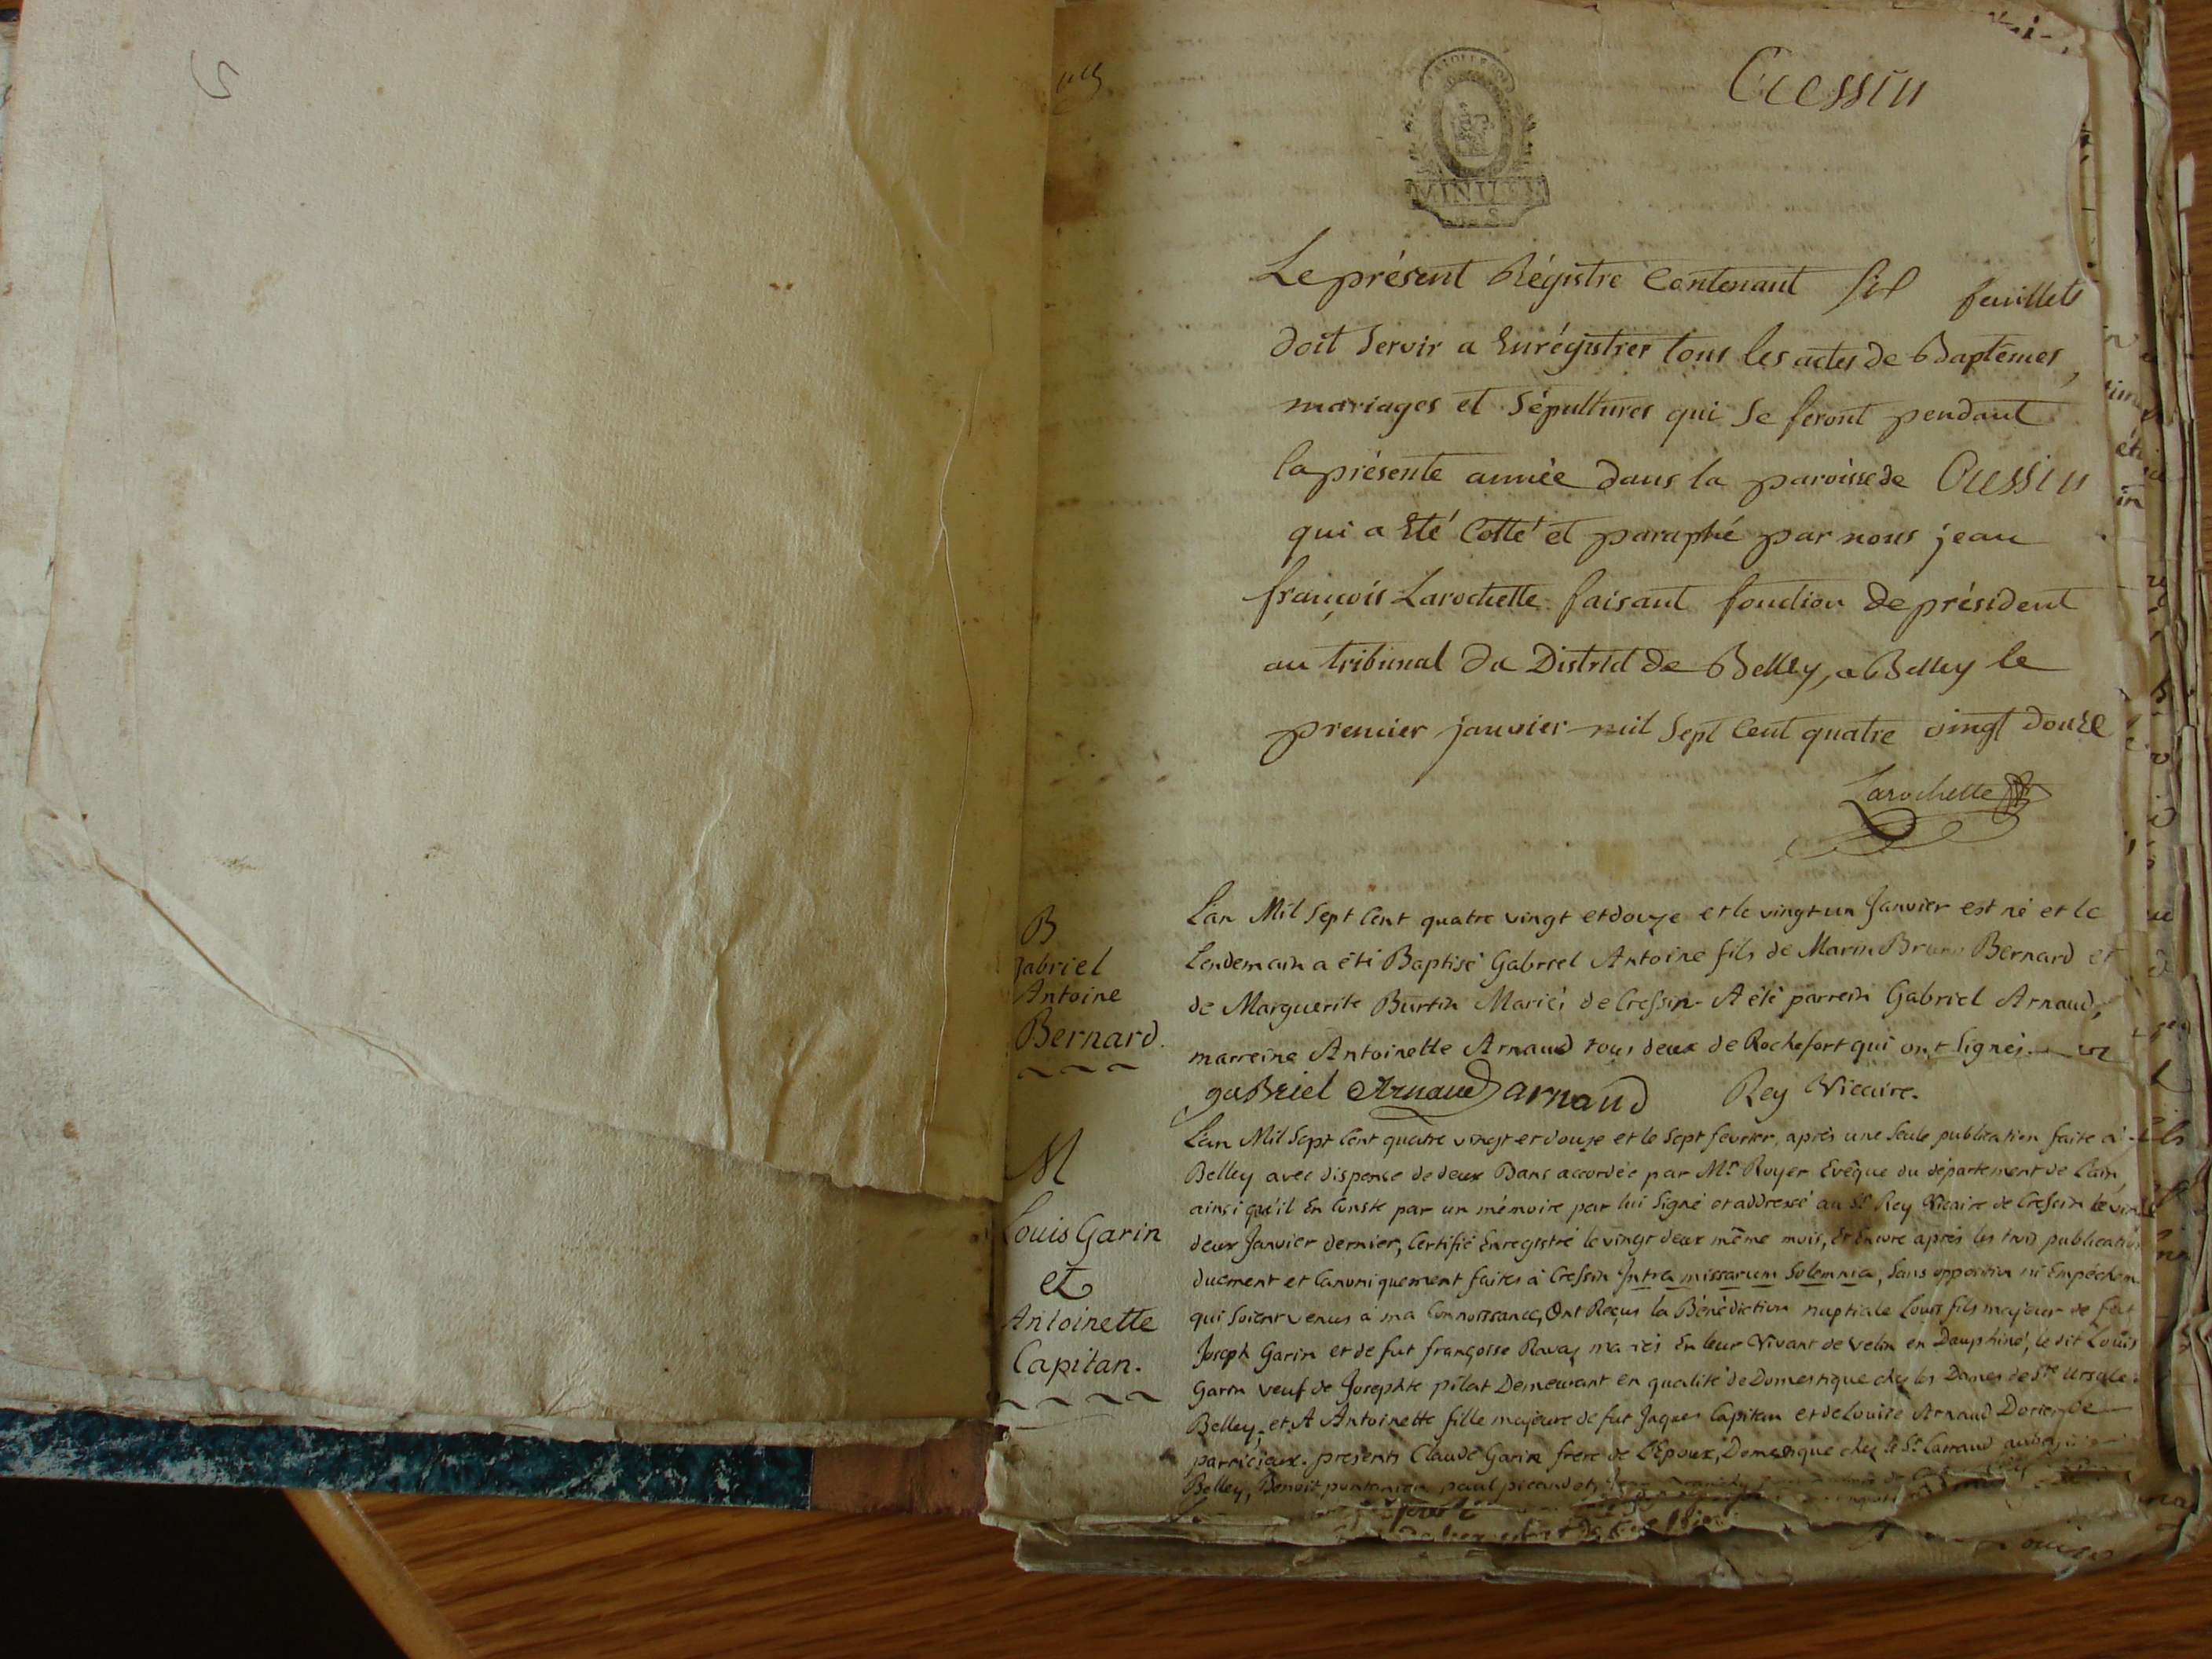 Cressin
MINUTE
Le présent Régistre Contenant six feuillets
doit Servir a Enrégistrer tous les actes de Baptêmes,
mariages et Sépultures qui Se feront pendant
la présente année dans la paroisse de Cressin
qui a Eté Cotté et paraphé par nous jean
françois Larochette faisant fonction de président
au tribunal Du District de Belley, a Belley le
premier janvier mil Sept Cent quatre vingt douze
Larochette
B
Gabriel
Antoine
Bernard.
L'an Mil Sept Cent quatre vingt et douze et le vingt un Janvier est né et le
Lendemain a été Baptisé Gabriel Antoine fils de Marin Bruno Bernard et
de Marguerite Burtin Mariés de Cressin. A été parrein Gabriel Arnaud,
marreine Antoinette Arnaud tous deux de Rochefort qui ont Signés.
gabriel Arnaud arnaud Rey Vicaire.
M
Louis Garin
et
Antoinette
Capitan.
L'an Mil Sept Cent quatre vingt et douze et le Sept fevrier, après une Seule publication faite à
Belley avec dispense de deux Bans accordée par Mr Royer Evêque du département de L'ain,
ainsi qu'il En Conste par un mémoire par lui Signé et addressé au Sr Rey Vicaire de Cressin le
deux Janvier dernier, Certifié Enregistré le vingt deux même mois, Et Encore après les trois
duement et Canoniquement faites à Cressin Intra missarum Solemnia, Sans opposition ni
qui Soient venus à ma Connoissance, Ont Reçus la Bénédiction nuptiale Louis fils majeur de feu
Joseph Garin et de fut françoise mariés En leur Vivant de Velin en Dauphiné, le dit Louis
Garin veuf de Josephte pilat Demeurant en qualité de Domestique chez les Dames de Ste Ursule
Belley, et A Antoinette fille majeure de fut Jaques Capitan et de Louise Arnaud
parricieux. presents Claude Garin frere de L'Epoux, Domestique chez le Sr
Belley, Benoit paul